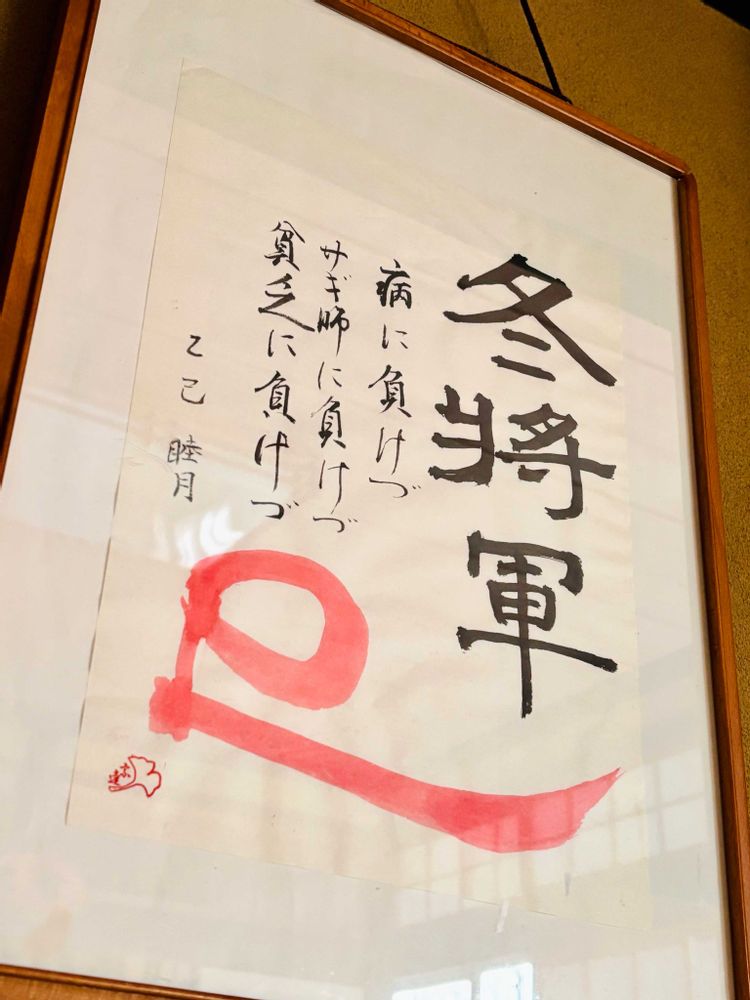 冬将軍
病に負けづ
サギ師に負けづ
貧乏に負けづ
乙巳 睦月
巳